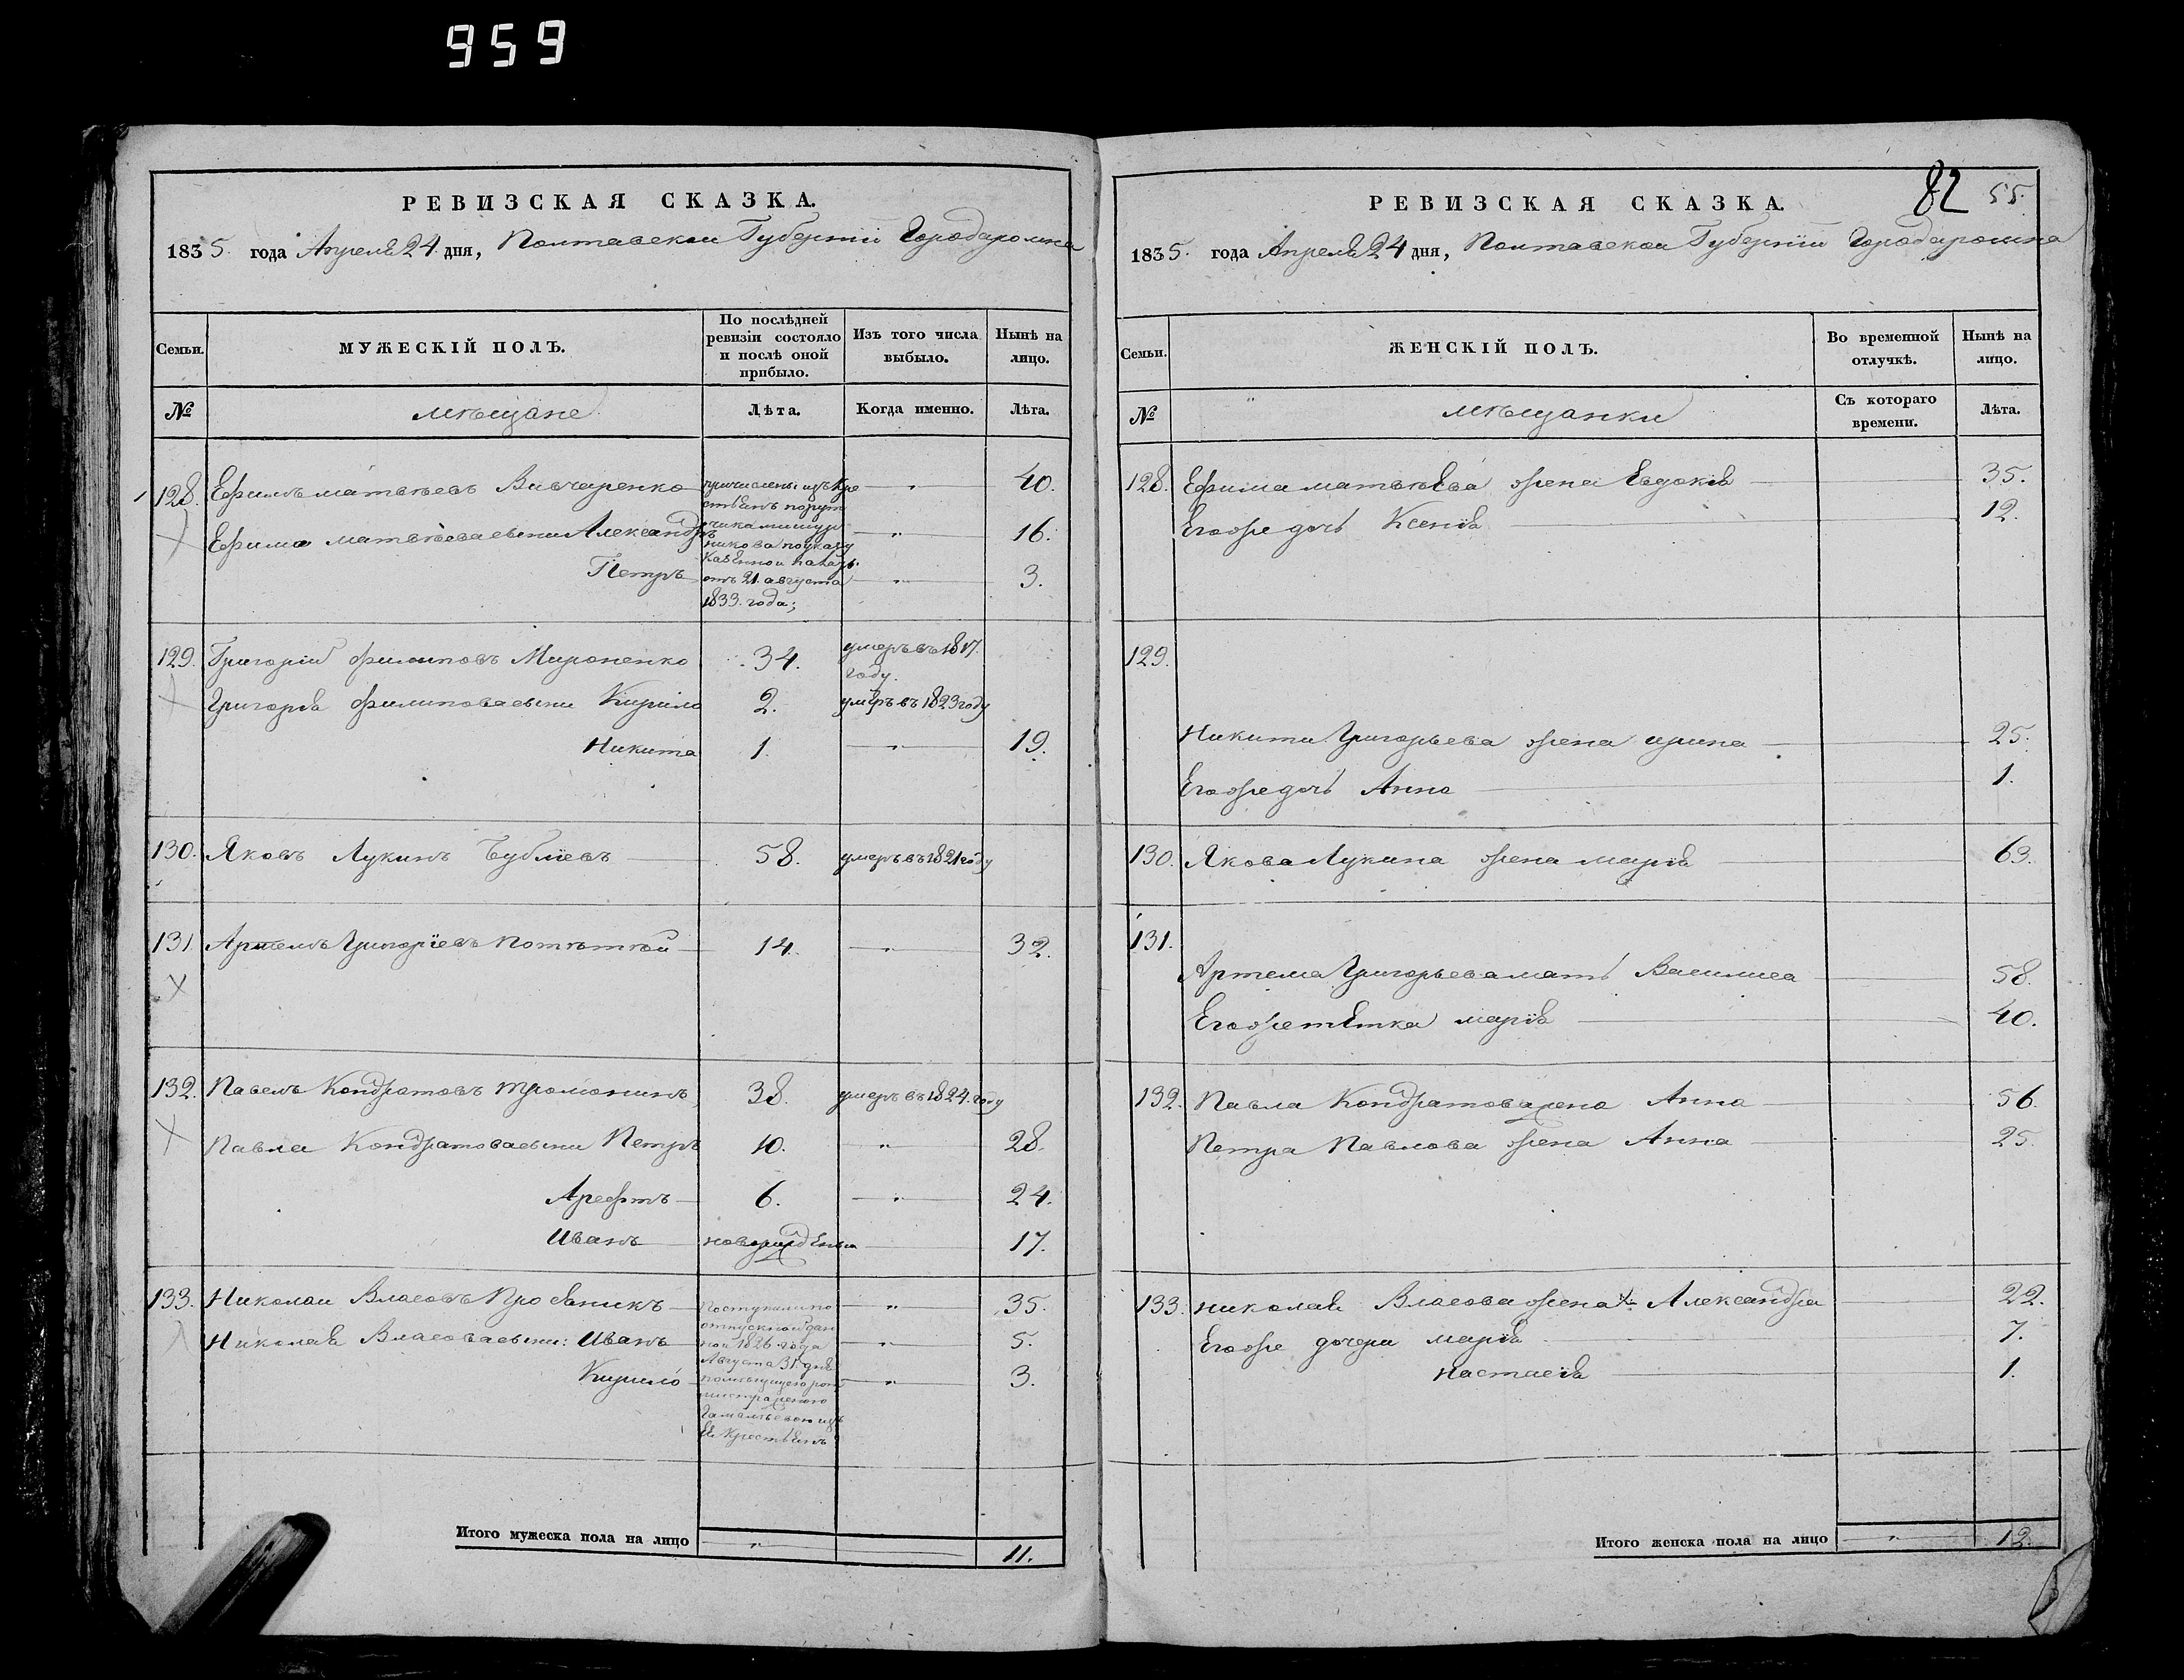 959
РЕВИЗСКАЯ СКАЗКА.
1835. года Апреля 24 дня, Полтавской Губернии Города Ромна
Семьи.
МУЖЕСКІЙ ПОЛЪ.
По послѣдней ревизіи состояло и послѣ оной прибыло.
Изъ того числа выбыло.
Нынѣ на лицо.
№
мѣщане
Лѣта.
Когда именно.
Лѣта.
128. Ефимъ матвѣевъ Вивчаренко " 40.
Ефима матвѣева сыни Александръ " 16.
Петръ " 3.
причислены изъ кре
стьянъ
казенной палаты
отъ 21. августа
1833. года;
129. Григорій филиповъ Мироненко 34. умеръ въ 1817. году.
Григорія филипова сыни Кирило 2. умеръ въ 1823 году
Никита 1. " 19.
130. Яковъ Лукинъ Бублиевъ 58. умеръ въ 1821 году
131. Артемъ Григорїевъ 14. " 32.
132. Павелъ Кондратовъ 38. умеръ въ 1824. году
Павла Кондратова сыни Петръ 10. " 28.
Арефтъ 6. " 24.
Иванъ новорожденъ 17.
133. Николаи Власовъ " 35.
Николая Власова сыни: Иванъ " 5.
Кирило " 3.
Поступили по
отпускной дан
ной 1826 года
Августа 31 дня
Крестьянъ
Итого мужеска пола на лицо " 11.
82 55.
РЕВИЗСКАЯ СКАЗКА.
1835. года Апреля 24 дня, Полтавской Губернїи Города Ромна
Семьи.
ЖЕНСКІЙ ПОЛЪ.
Во временной отлучкѣ.
Нынѣ на лицо.
№
мѣщанки
Съ котораго времени.
Лѣта.
128. Ефима матвѣева жена Евдокія 35.
Его же дочь Ксенія 12.
129.
Никити Григорьева жена ирина 25.
Его же дочь Анна 1.
130. Якова Лукина жена марія 63.
131.
Артема Григорьева мать Василиса 58.
Его же тетка марїя 40.
132. Павла Кондратова жена Анна 56.
Петра Павлова жена Анна 25.
133. николая Власова жена Александра 22.
Его же дочери марїя 7.
настасія 1.
Итого женска пола на лицо " 12.